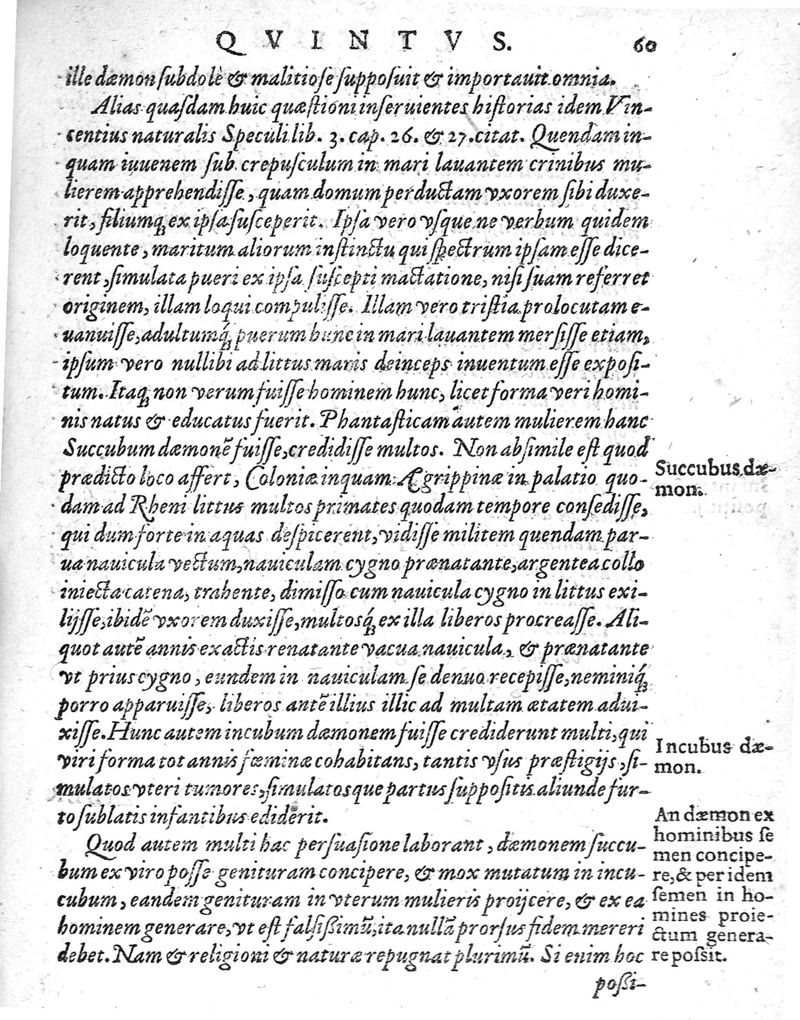 QVINTVS. 60
ille dæmon ſubdolè & malitioſe ſuppoſuit & importauit omnia.
Alias quaſdam huic quæſtioni inſeruientes hiſtorias idem Vin-
centius naturalis Speculi lib. 3. cap. 26. & 27. citat. Quendam in-
quam iuuenem ſub crepuſculum in mari lauantem crinibus mu-
lierem apprehendiſſe, quam domum perductam vxorem ſibi duxe-
rit, filiumq́; ex ipſa ſuſceperit. Ipſa vero vſque ne verbum quidem
loquente, maritum aliorum inſtinctu qui ſpectrum ipſam eſſe dice-
rent, ſimulata pueri ex ipſa ſuſcepti mactatione, niſi ſuam referret
originem, illam loqui compuliſſe. Illam vero triſtia prolocutam e-
uanuiſſe, adultumq́; puerum hunc in mari lauantem merſiſſe etiam,
ipſum vero nullibi ad littus maris deinceps inuentum eſſe expoſi-
tum. Itaq; non verum fuiſſe hominem hunc, licet forma veri homi-
nis natus & educatus fuerit. Phantaſticam autem mulierem hanc
Succubum dæmonē fuiſſe, credidiſſe multos. Non abſimile eſt quod
prædicto loco affert, Coloniæ inquam Ægrippinæ in palatio quo-
dam ad Rheni littus multos primates quodam tempore conſediſſe,
qui dum forte in aquas deſpicerent, vidiſſe militem quendam par-
ua nauicula vectum, nauiculam cygno prænatante, argentea collo
iniecta catena, trahente, dimiſſo cum nauicula cygno in littus exi-
lijſſe, ibidē vxorem duxiſſe, multosq́; ex illa liberos procreaſſe. Ali-
quot autē annis exactis renatante vacua nauicula, & prænatante
vt prius cygno, eundem in nauiculam ſe denuo recepiſſe, neminiq́;
porro apparuiſſe, liberos autē illius illic ad multam ætatem adui-
xiſſe. Hunc autem incubum dæmonem fuiſſe crediderunt multi, qui
viri forma tot annis fœminæ cohabitans, tantis vſus præſtigijs, ſi-
mulatos vteri tumores, ſimulatosque partus ſuppoſitis aliunde fur-
to ſublatis infantibus ediderit.
Quod autem multi hac perſuaſione laborant, dæmonem ſuccu-
bum ex viro poſſe genituram concipere, & mox mutatum in incu-
cubum, eandem genituram in vterum mulieris proijcere, & ex ea
hominem generare, vt eſt falſiſſimū, ita nullā prorſus fidem mereri
debet. Nam & religioni & naturæ repugnat plurimū. Si enim hoc
poſſi-
Succubus dæ-
mon.
Incubus dæ-
mon.
An dæmon ex
hominibus ſe
men concipe-
re, & per idem
ſemen in ho-
mines proie-
ctum genera-
re poſſit.